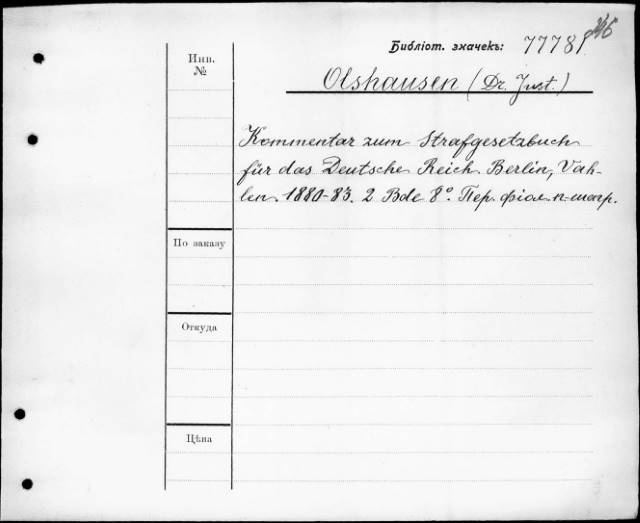 Библіот. значекъ: 7778
Инв.
№
Olshausen (Dr. Just.)
Kommentar zum Strafgesetzbuch
für das Deutsche Reich. Berlin, Vah-
len. 1880-83. 2 Bde 8°. Пер. фіол. п-шагр.
По заказу
Откуда
Цѣна